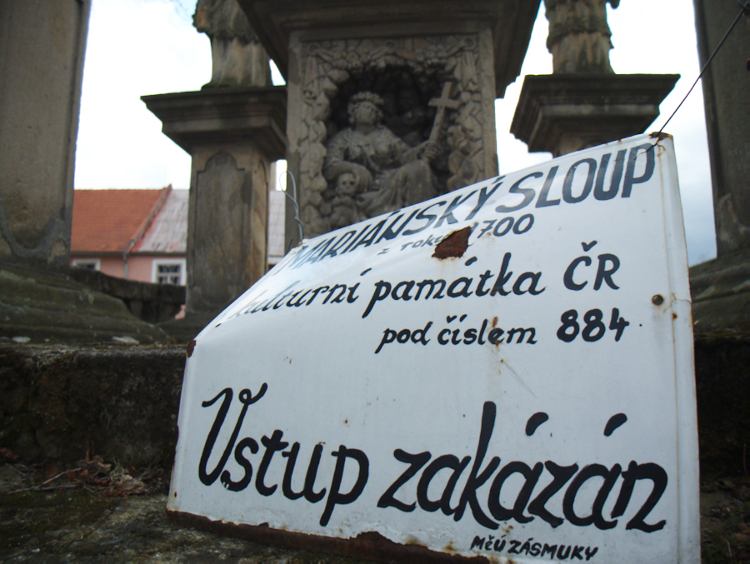 MARIÁNSKÝ SLOUP
z roku 1700
kulturní památka ČR
pod číslem 884
Vstup zakázán
MěÚ ZÁSMUKY